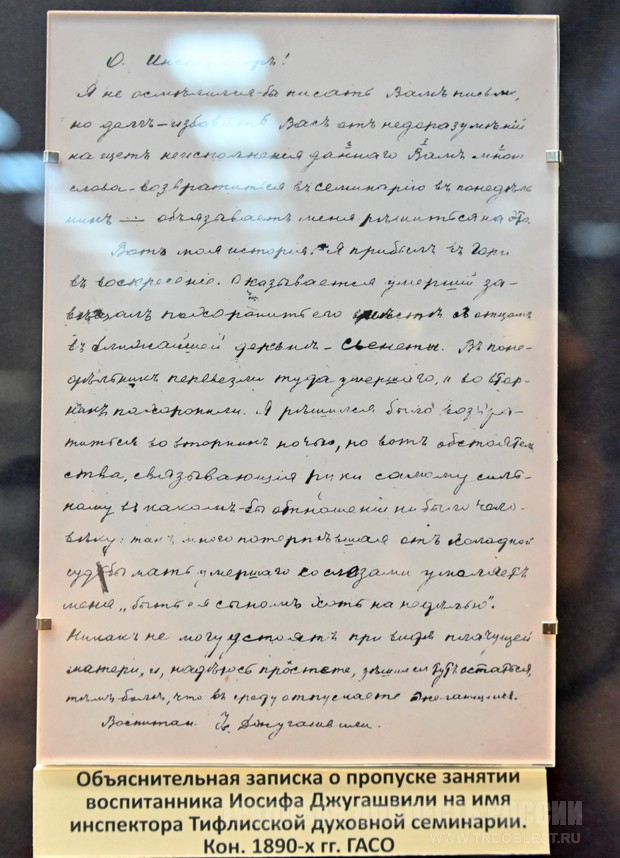 О. Инспекторъ!
Я не осмѣлился-бы писать Вамъ письмо,
но долгъ – избавить Васъ отъ недоразумѣній
на щетъ неисполнения даннаго Вамъ мною
слова – возвратиться въ семинарію въ понедѣль
никъ – объязаваетъ меня рѣшиться на это.
Вотъ моя история. Я прибылъ въ Гори
въ воскресение. Оказывается умерший за-
вещалъ похоронить его вместѣ съ отцомъ
въ ближайшей деревнѣ – Свенеты. Въ поне-
дѣльникъ перевезли туда умершаго, а во втор-
никъ похоронили. Я рѣшился было возвра-
титься во вторникъ ночью, но вотъ обстоятель
ства, связывающія руки самому силь-
ному въ какомъ-бы отношении ни было чело-
вѣку: такъ много потерпѣвшая отъ холодной
судьбы мать умершаго со слезами умоляетъ
меня „быть ея сыномъ хоть на недѣлью".
Никакъ не могу устоять при видѣ плачущей
матери, и, надѣюсь простете, рѣшился тутъ остаться,
тѣмъ болѣе, что въ среду отпускаете желающихъ.
Воспитан. И. Джугашвили.
Объяснительная записка о пропуске занятии
воспитанника Иосифа Джугашвили на имя
инспектора Тифлисской духовной семинарии.
Кон. 1890-х гг. ГАСО